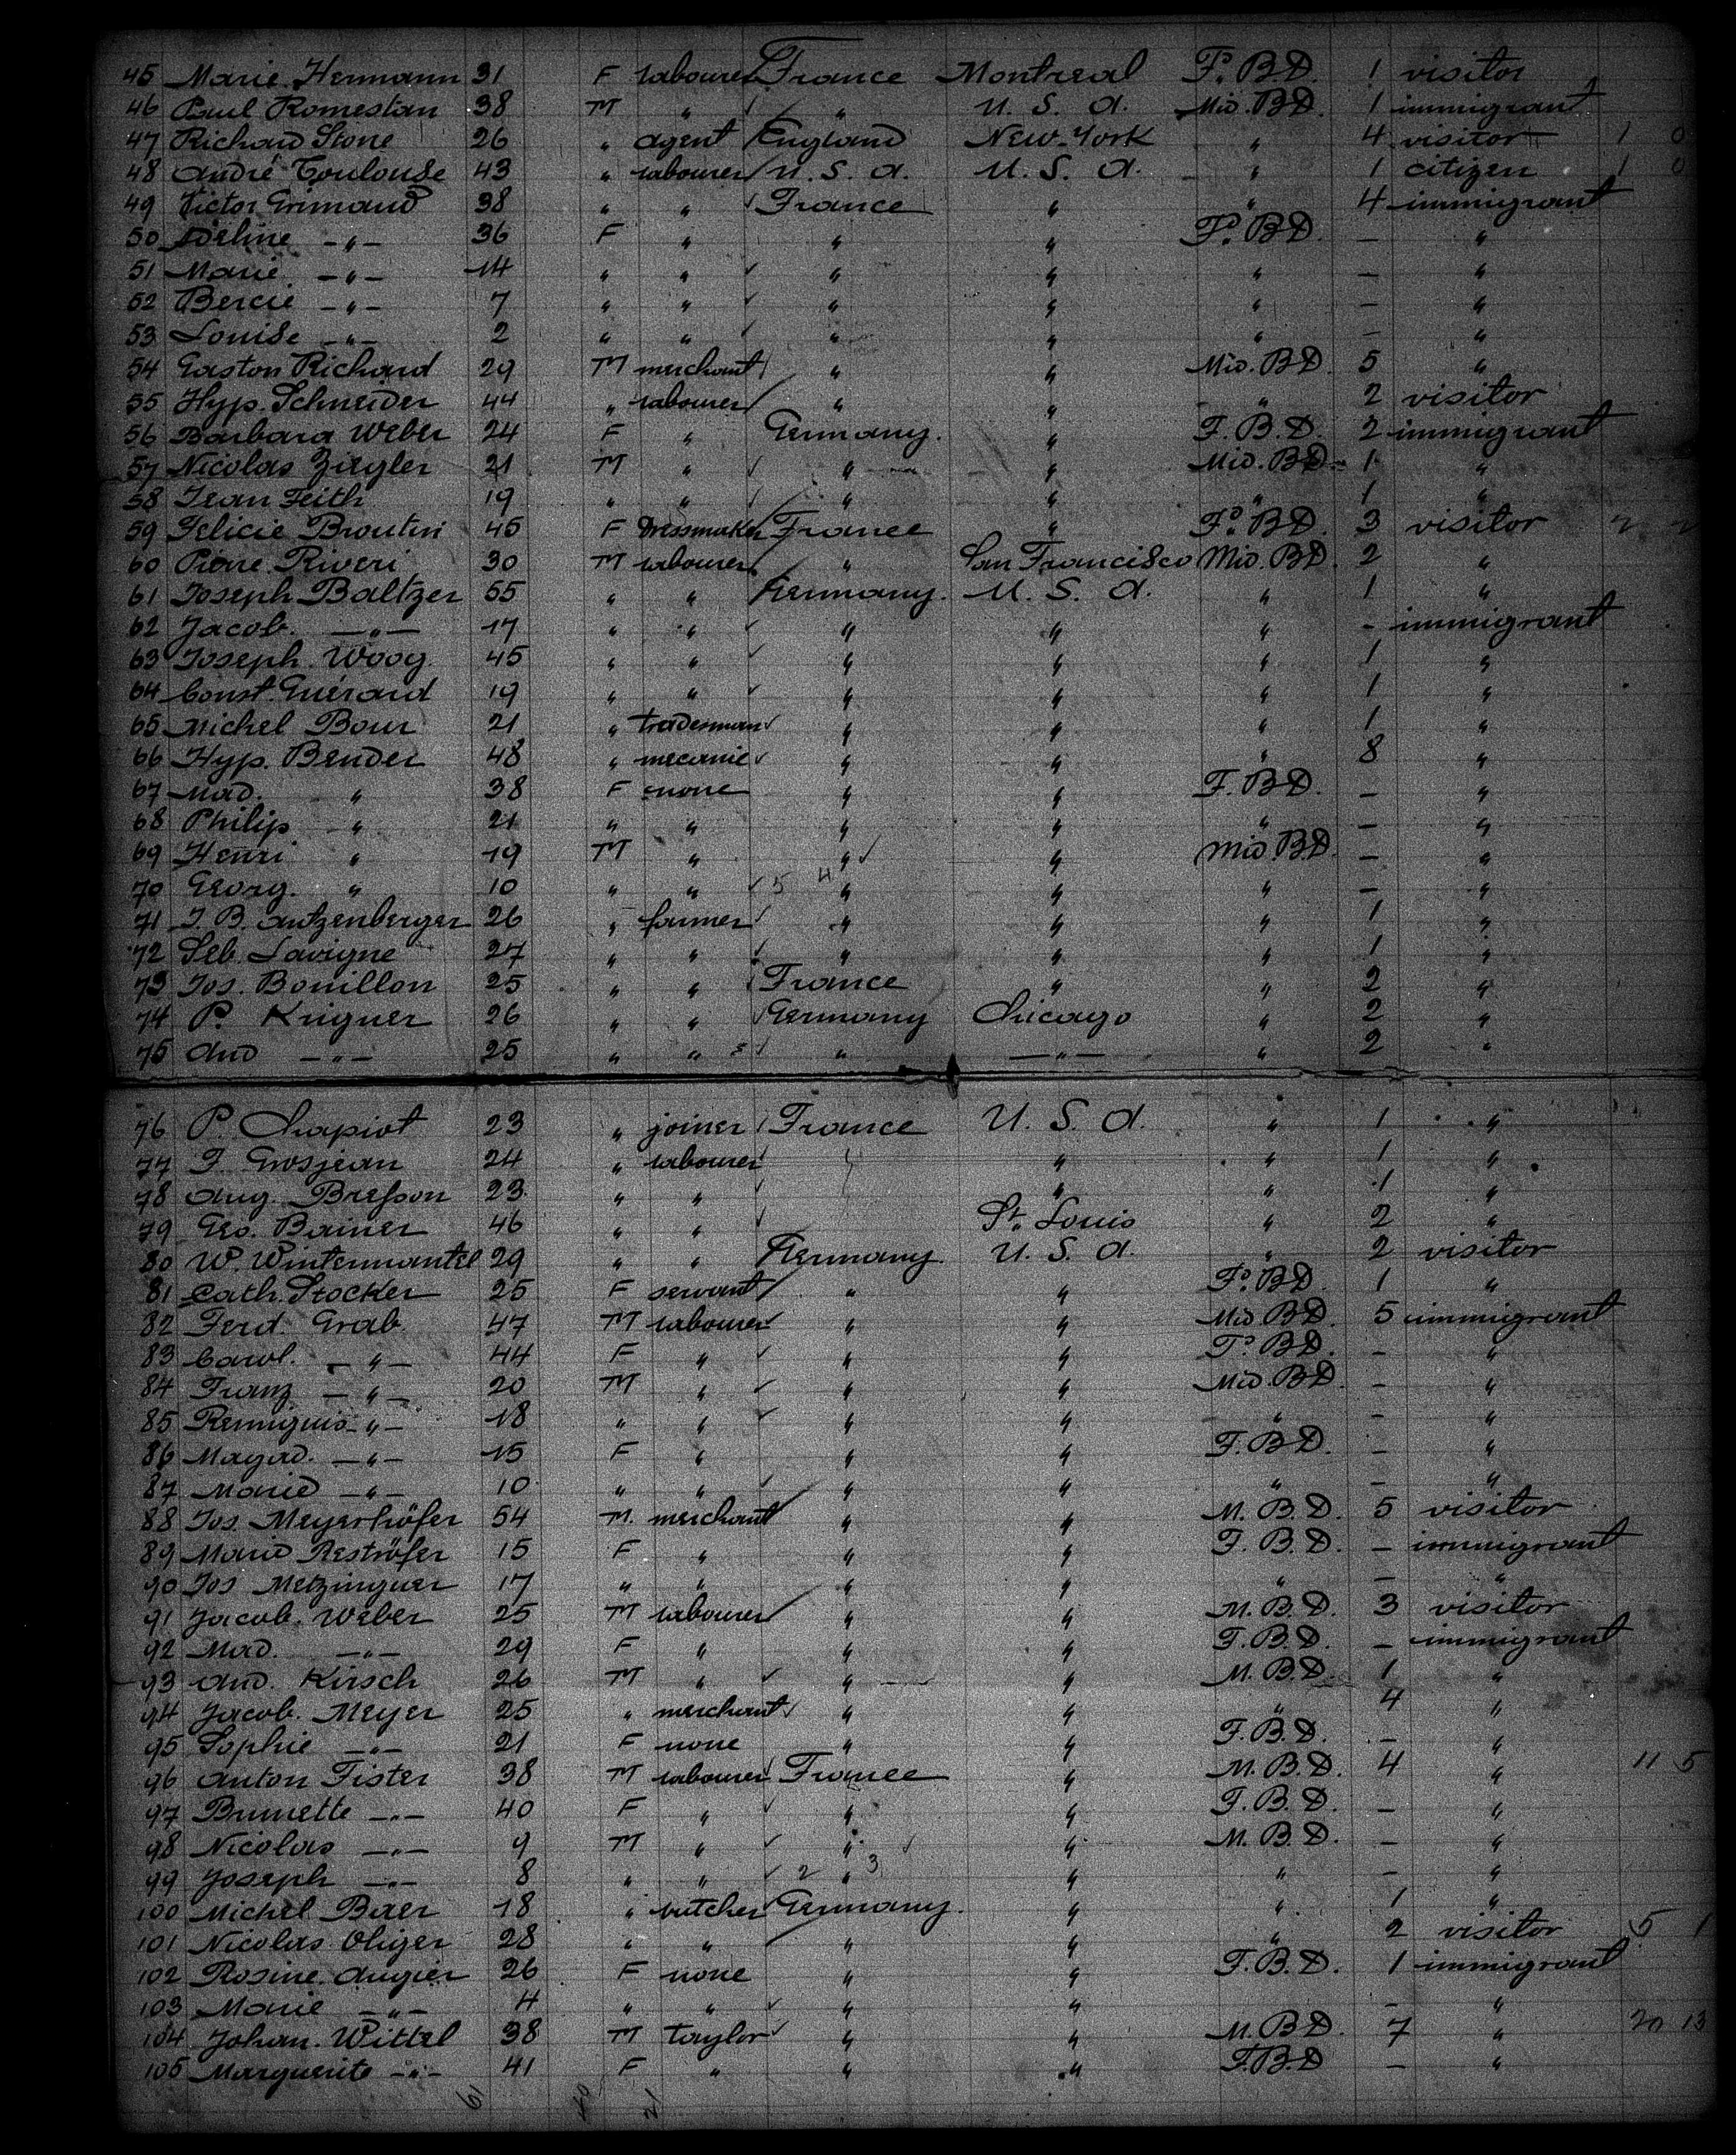 45 Marie Hermann 31 F labourer France Montreal F. BD. 1 visitor
46 Paul Romestan 38 M " " U. S. A. Mid. BD. 1 immigrant
47 Richard Stone 26 " agent England New-York " 4 visitor 1 0
48 André Toulouse 43 " labourer U. S. A. U. S. A. " 1 citizen 1 0
49 Victor Grimaud 38 " " France " " 4 immigrant
50 Adeline -"- 36 F " " " F. BD. - "
51 Marie -"- 14 " " " " " - "
52 Bercie -"- 7 " " " " " - "
53 Louise -"- 2 " " " " " - "
54 Gaston Richard 29 M merchant " " Mid. BD. 5 "
55 Hyp. Schneider 44 " labourer " " " 2 visitor
56 Barbara Weber 24 F " Germany. " F. B. D. 2 immigrant
57 Nicolas Ziegler 21 M " " " Mid. BD. 1 "
58 Jean Feith 19 " " " " " 1 "
59 Felicie Broutin 45 F Dressmaker France " F. BD. 3 visitor 2 2
60 Pierre Riveri 30 M labourer " San Francisco Mid. BD. 2 "
61 Joseph Baltzer 55 " " Germany. U. S. A. " 1 "
62 Jacob. -"- 17 " " " " " - immigrant
63 Joseph Woog 45 " " " " " 1 "
64 Const. Guérard 19 " " " " " 1 "
65 Michel Bour 21 " tradesman " " " 1 "
66 Hyp. Bender 48 " mecanic " " " 8 "
67 Mad. " 38 F none " " F. BD. - "
68 Philip " 21 " " " " " - "
69 Henri " 19 M " " " Mid. BD. - "
70 Georg. " 10 " " 5 4 " " " - "
71 J. B. Antzenberger 26 " farmer " " " 1 "
72 Seb. Lavigne 27 " " " " " 1 "
73 Jos. Bouillon 25 " " France " " 2 "
74 P. Kriguer 26 " " Germany Chicago " 2 "
75 And -"- 25 " " " -"- " 2 "
76 P. Chapiot 23 " joiner France U. S. A. " 1 "
77 F. Grosjean 24 " labourer " " 1 "
78 Aug. Bresson 23 " " " " 1 "
79 Geo. Bainer 46 " " St. Louis " 2 "
80 W. Wintermantel 29 " " Germany U. S. A. " 2 visitor
81 Cath. Stocker 25 F servant " " F. BD 1 "
82 Ferd. Grab. 47 M labourer " " Mid. BD. 5 immigrant
83 Carol. -"- 44 F " " " F. BD. - "
84 Franz -"- 20 M " " " Mid. BD. - "
85 Remiguis -"- 18 " " " " " - "
86 Magad. -"- 15 F " " " F. BD. - "
87 Marie -"- 10 " " " " " - "
88 Jos. Meyerhöfer 54 M. merchant " " M. B. D. 5 visitor
89 Marie Reströfer 15 F " " " F. B. D. - immigrant
90 Jos Metzinguer 17 " " " " " - "
91 Jacob. Weber 25 M labourer " " M. B. D. 3 visitor
92 Mad. -"- 29 F " " " F. B. D. - immigrant
93 And. Kirsch 26 M " " " M. B. D. 1 "
94 Jacob. Meyer 25 " merchant " " " 4 "
95 Sophie -"- 21 F none " " F. B. D. - "
96 Anton Fister 38 M labourer France " M. B. D. 4 " 11 5
97 Brunette -"- 40 F " " " F. B. D. - "
98 Nicolas -"- 9 M " " " M. B. D. - "
99 Joseph -"- 8 " " 2 " 3 " " - "
100 Michel Baer 18 " butcher Germany. " " 1 "
101 Nicolas Oliger 28 " " " " " 2 visitor 5 1
102 Rosine Augier 26 F none " " F. B. D. 1 immigrant
103 Marie -"- 4 " " " " - "
104 Johan. Wittel 38 M taylor " " M. B D. 7 " 20 13
105 Marguerite -"- 41 F " " " F. B. D - "
61 40 21